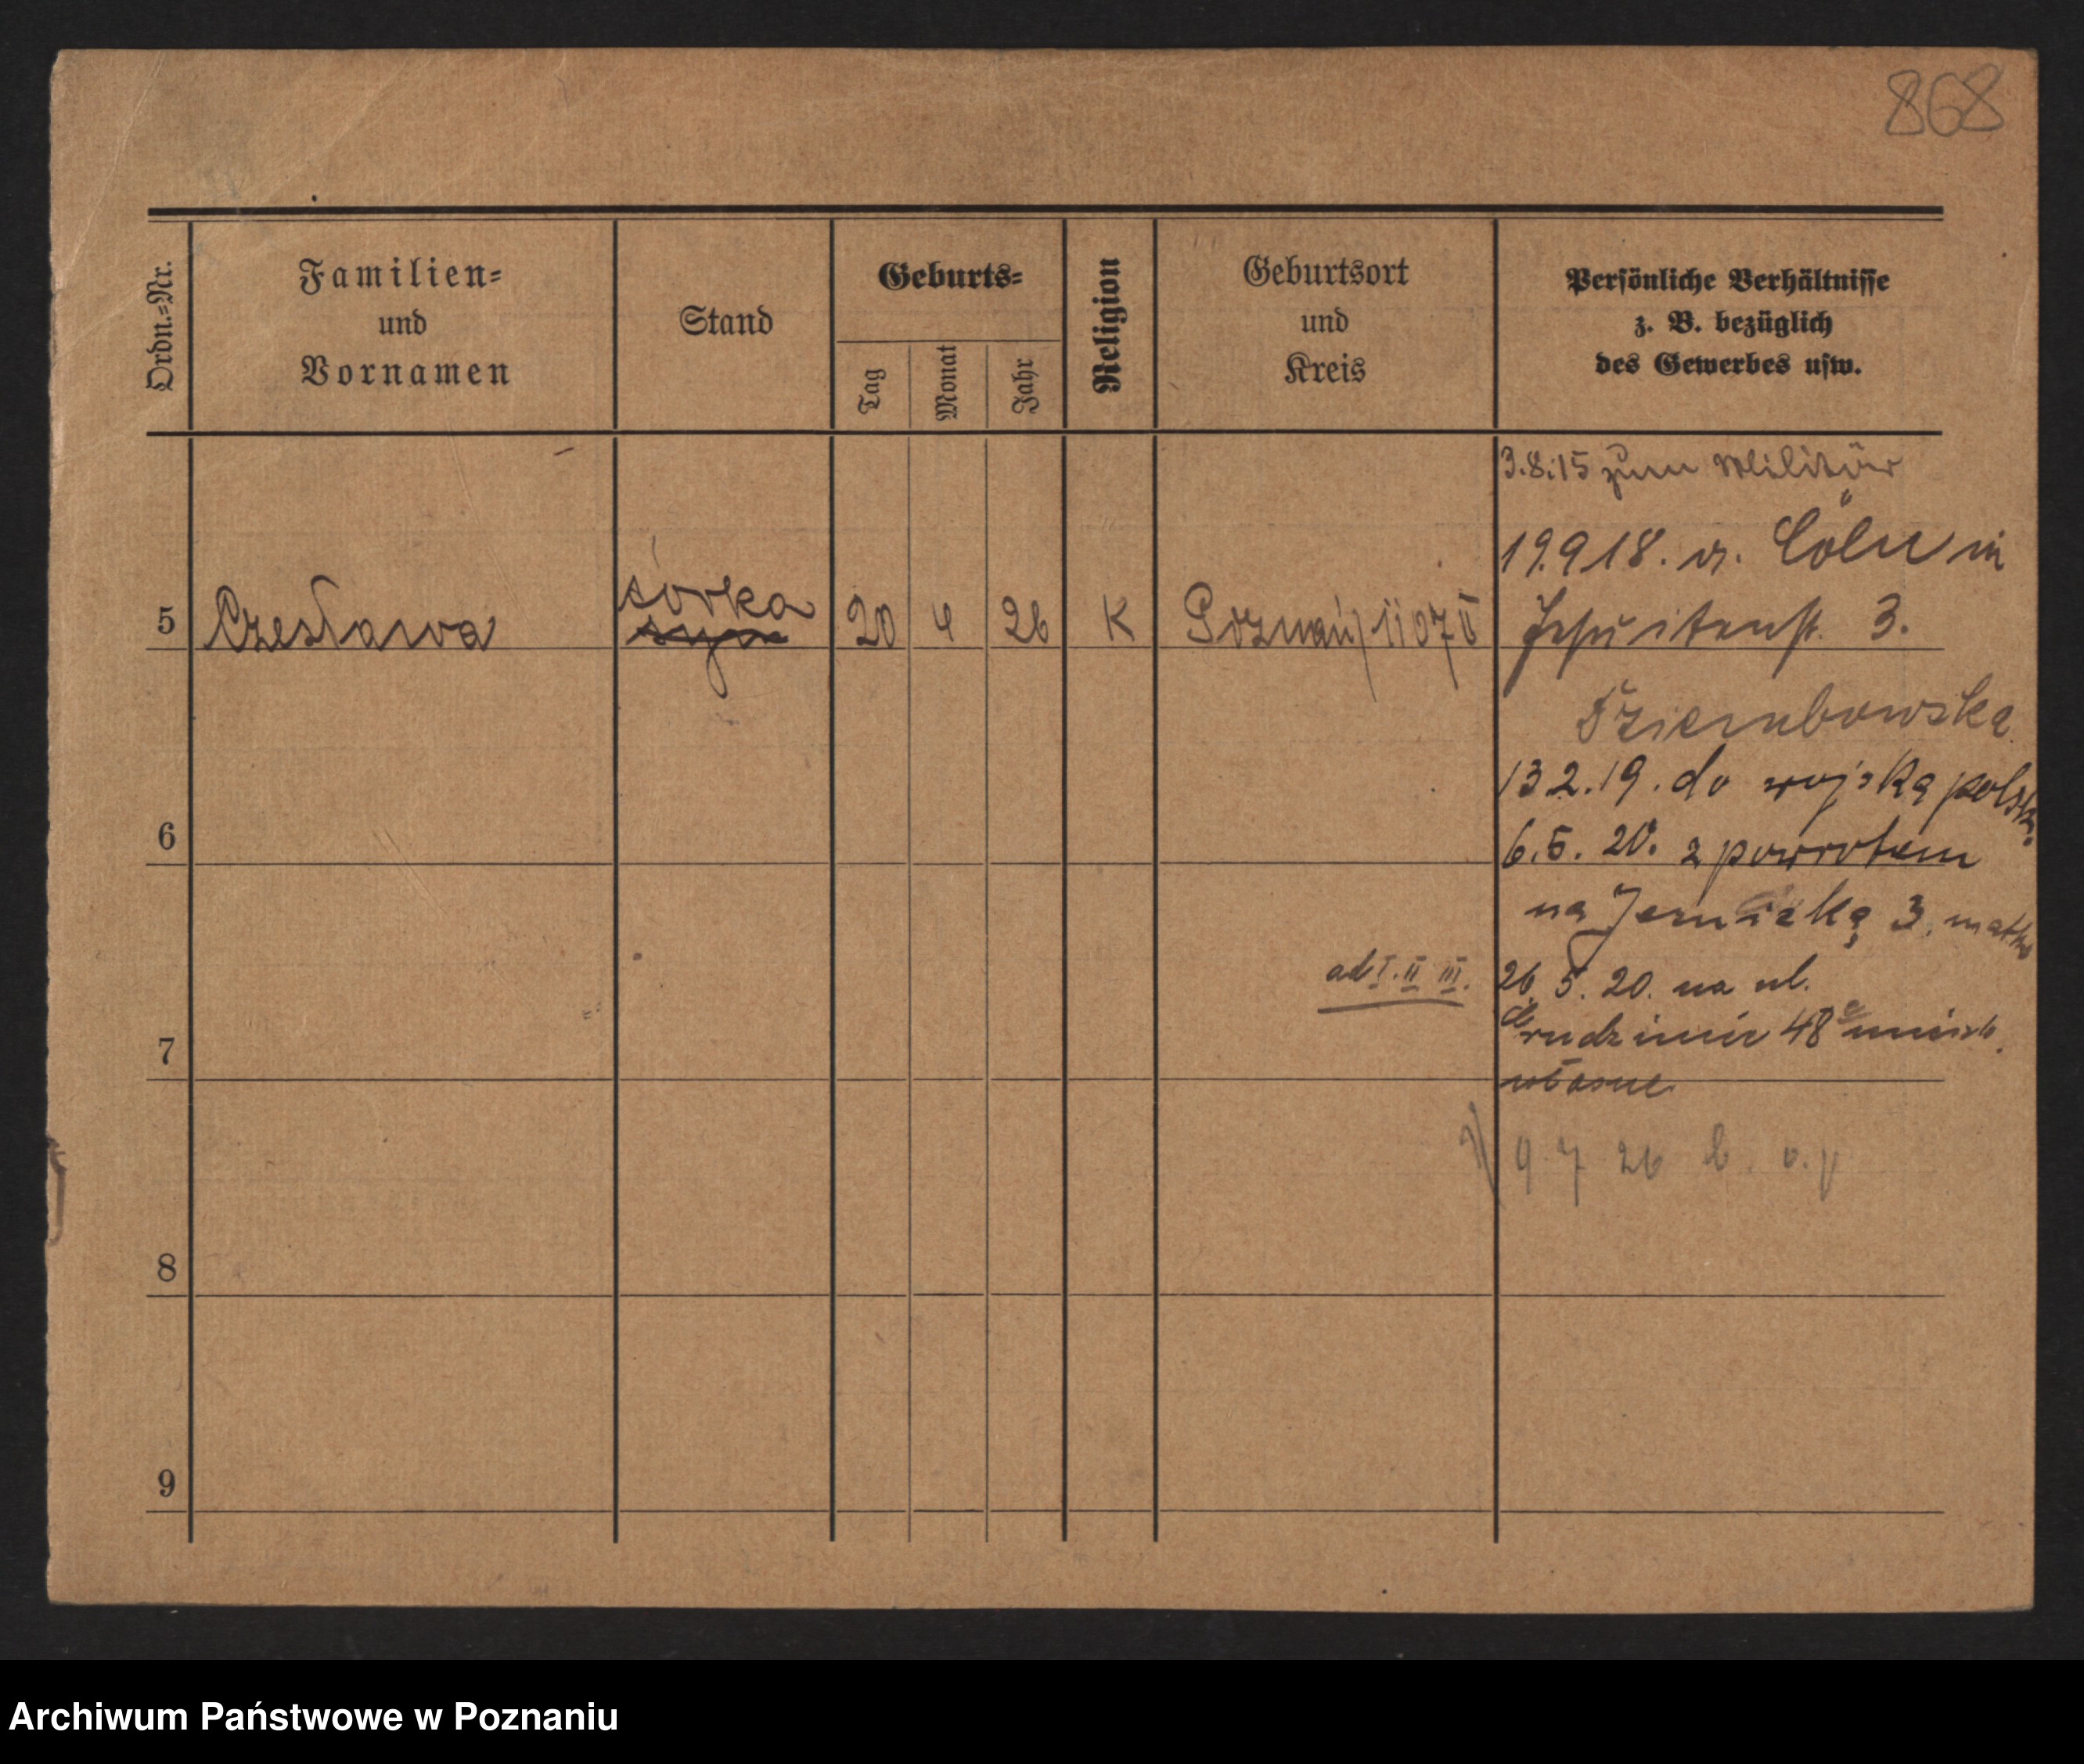 868
Ordn.-Nr.
Familien-
und
Vornamen
Stand
Geburts-
Tag
Monat
Jahr
Religion
Geburtsort
und
Kreis
Persönliche Verhältnisse
z. B. bezüglich
des Gewerbes usw.
3.8.15 zum Militär
19.9 18. v. Cöln in
Jesuitenst. 3.
5 Czesława córka syn 20 4 26 K Poznań
13.2.19. do wojska polsk.
6
6.5. 20. z powrotem
na Jezuicką 3.
ad I. II III.
26 5. 20. na ul.
7
48
własne
9 7 26
8
9
Archiwum Państwowe w Poznaniu